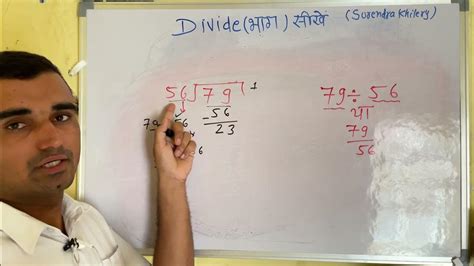 Divide (भाग) सीखे (Surendra Khilery)
56) 79 1
- 56
23
79 56
6
79 ÷ 56
या
79
56